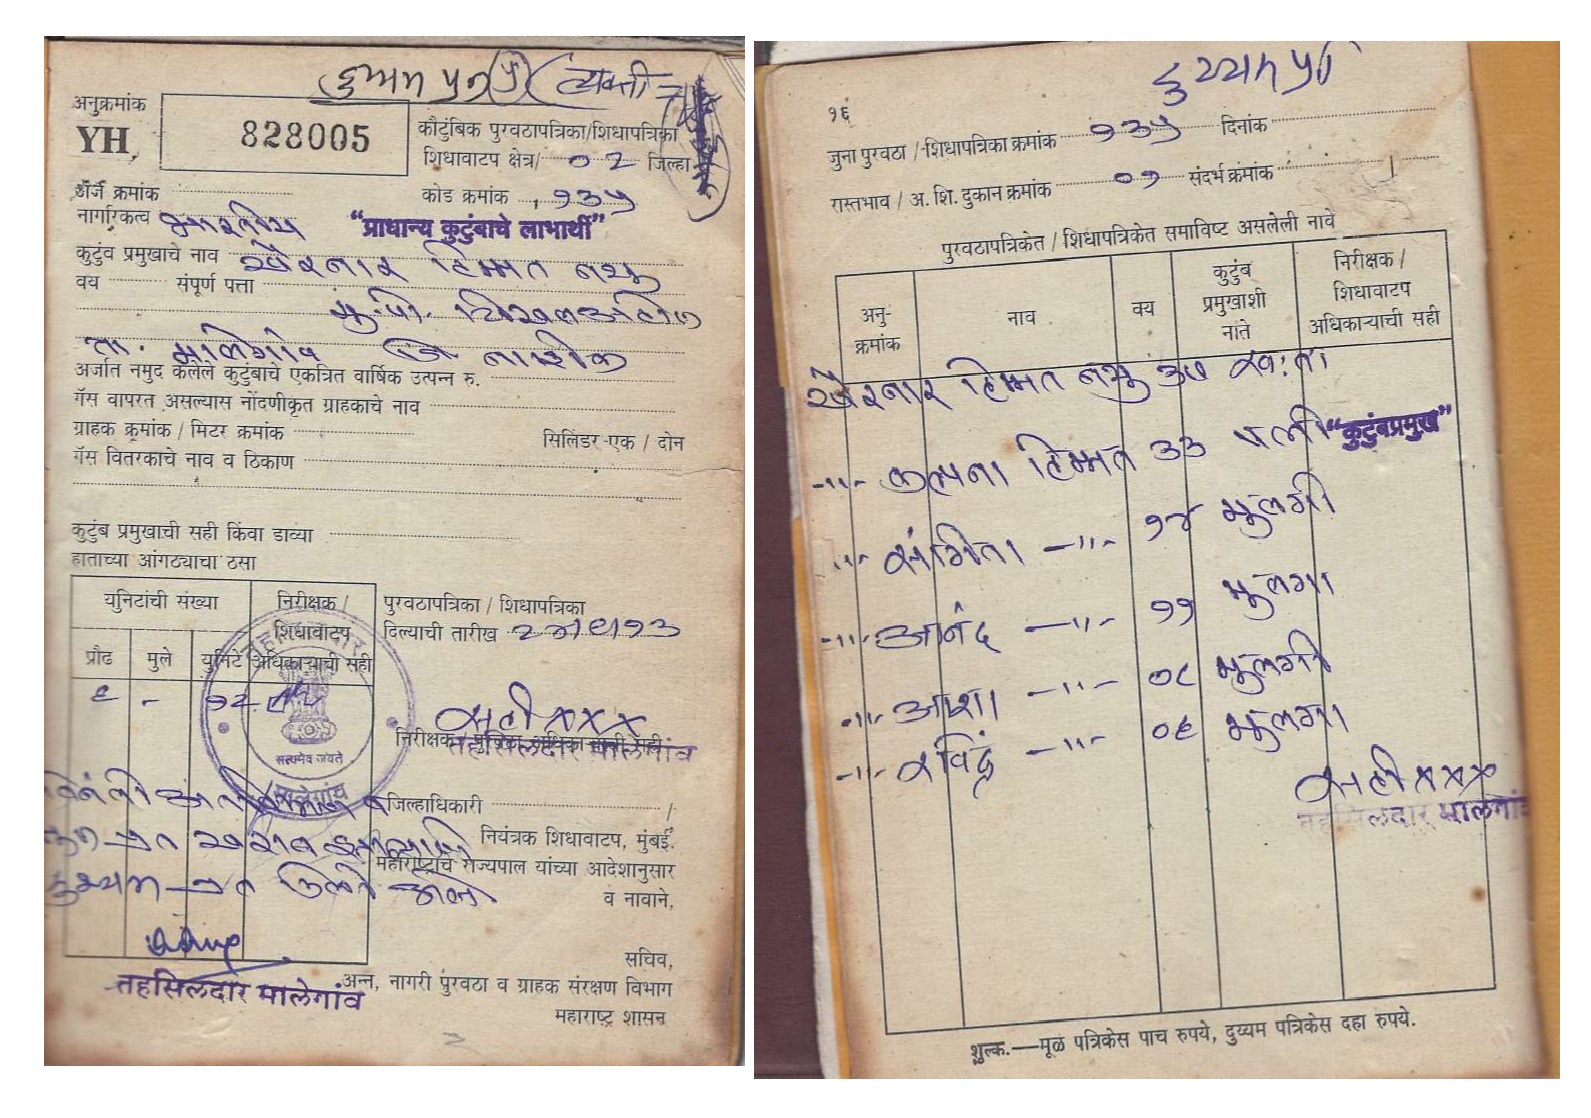 दुय्यम प्रत (व्यक्ती
अनुक्रमांक
YH 828005
कौटुंबिक पुरवठापत्रिका/शिधापत्रिका
शिधावाटप क्षेत्र/ ०२ जिल्हा
अर्ज क्रमांक
कोड क्रमांक १३५
नागरिकत्व भारतीय "प्राधान्य कुटुंबाचे लाभार्थी"
कुटुंब प्रमुखाचे नाव खैरनार हिम्मत नथु
वय संपूर्ण पत्ता
मु.पो. चिखलओहोळ
ता. मालेगांव जि नाशीक
अर्जात नमुद केलेले कुटुंबाचे एकत्रित वार्षिक उत्पन्न रु.
गॅस वापरत असल्यास नोंदणीकृत ग्राहकाचे नाव
ग्राहक क्रमांक / मिटर क्रमांक सिलिंडर-एक / दोन
गॅस वितरकाचे नाव व ठिकाण
कुटुंब प्रमुखाची सही किंवा डाव्या
हाताच्या आंगठ्याचा ठसा
युनिटांची संख्या
निरीक्षक / शिधावाटप अधिकाऱ्याची सही
प्रौढ मुले युनिटे
६ - १२
पुरवठापत्रिका / शिधापत्रिका
दिल्याची तारीख
सही xxx
तहसिलदार मालेगांव
सत्यमेव जयते
मालेगांव
जिल्हाधिकारी
नियंत्रक शिधावाटप, मुंबई.
महाराष्ट्राचे राज्यपाल यांच्या आदेशानुसार
व नावाने,
प्रत खराब झाल्याने
दुय्यम प्रत
सचिव,
तहसिलदार मालेगांव
अन्न, नागरी पुरवठा व ग्राहक संरक्षण विभाग
महाराष्ट्र शासन
दुय्यम प्रत
१६
जुना पुरवठा /-शिधापत्रिका क्रमांक १३५ दिनांक
रास्तभाव / अ. शि. दुकान क्रमांक ०१ संदर्भ क्रमांक
पुरवठापत्रिकेत / शिधापत्रिकेत समाविष्ट असलेली नावे
अनु-क्रमांक
नाव
वय
कुटुंब प्रमुखाशी नाते
निरीक्षक / शिधावाटप अधिकाऱ्याची सही
खैरनार हिम्मत नथु ३७ स्वःता
-"- कल्पना हिम्मत ३३ पत्नी "कुटुंबप्रमुख"
-"- संगिता -"- १४ मुलगी
-"- आनंद -"- ११ मुलगा
-"- आशा -"- ०८ मुलगी
-"- रविंद्र -"- ०६ मुलगा
सही xxx
तहसिलदार मालेगांव
शुल्क.—मूळ पत्रिकेस पाच रुपये, दुय्यम पत्रिकेस दहा रुपये.